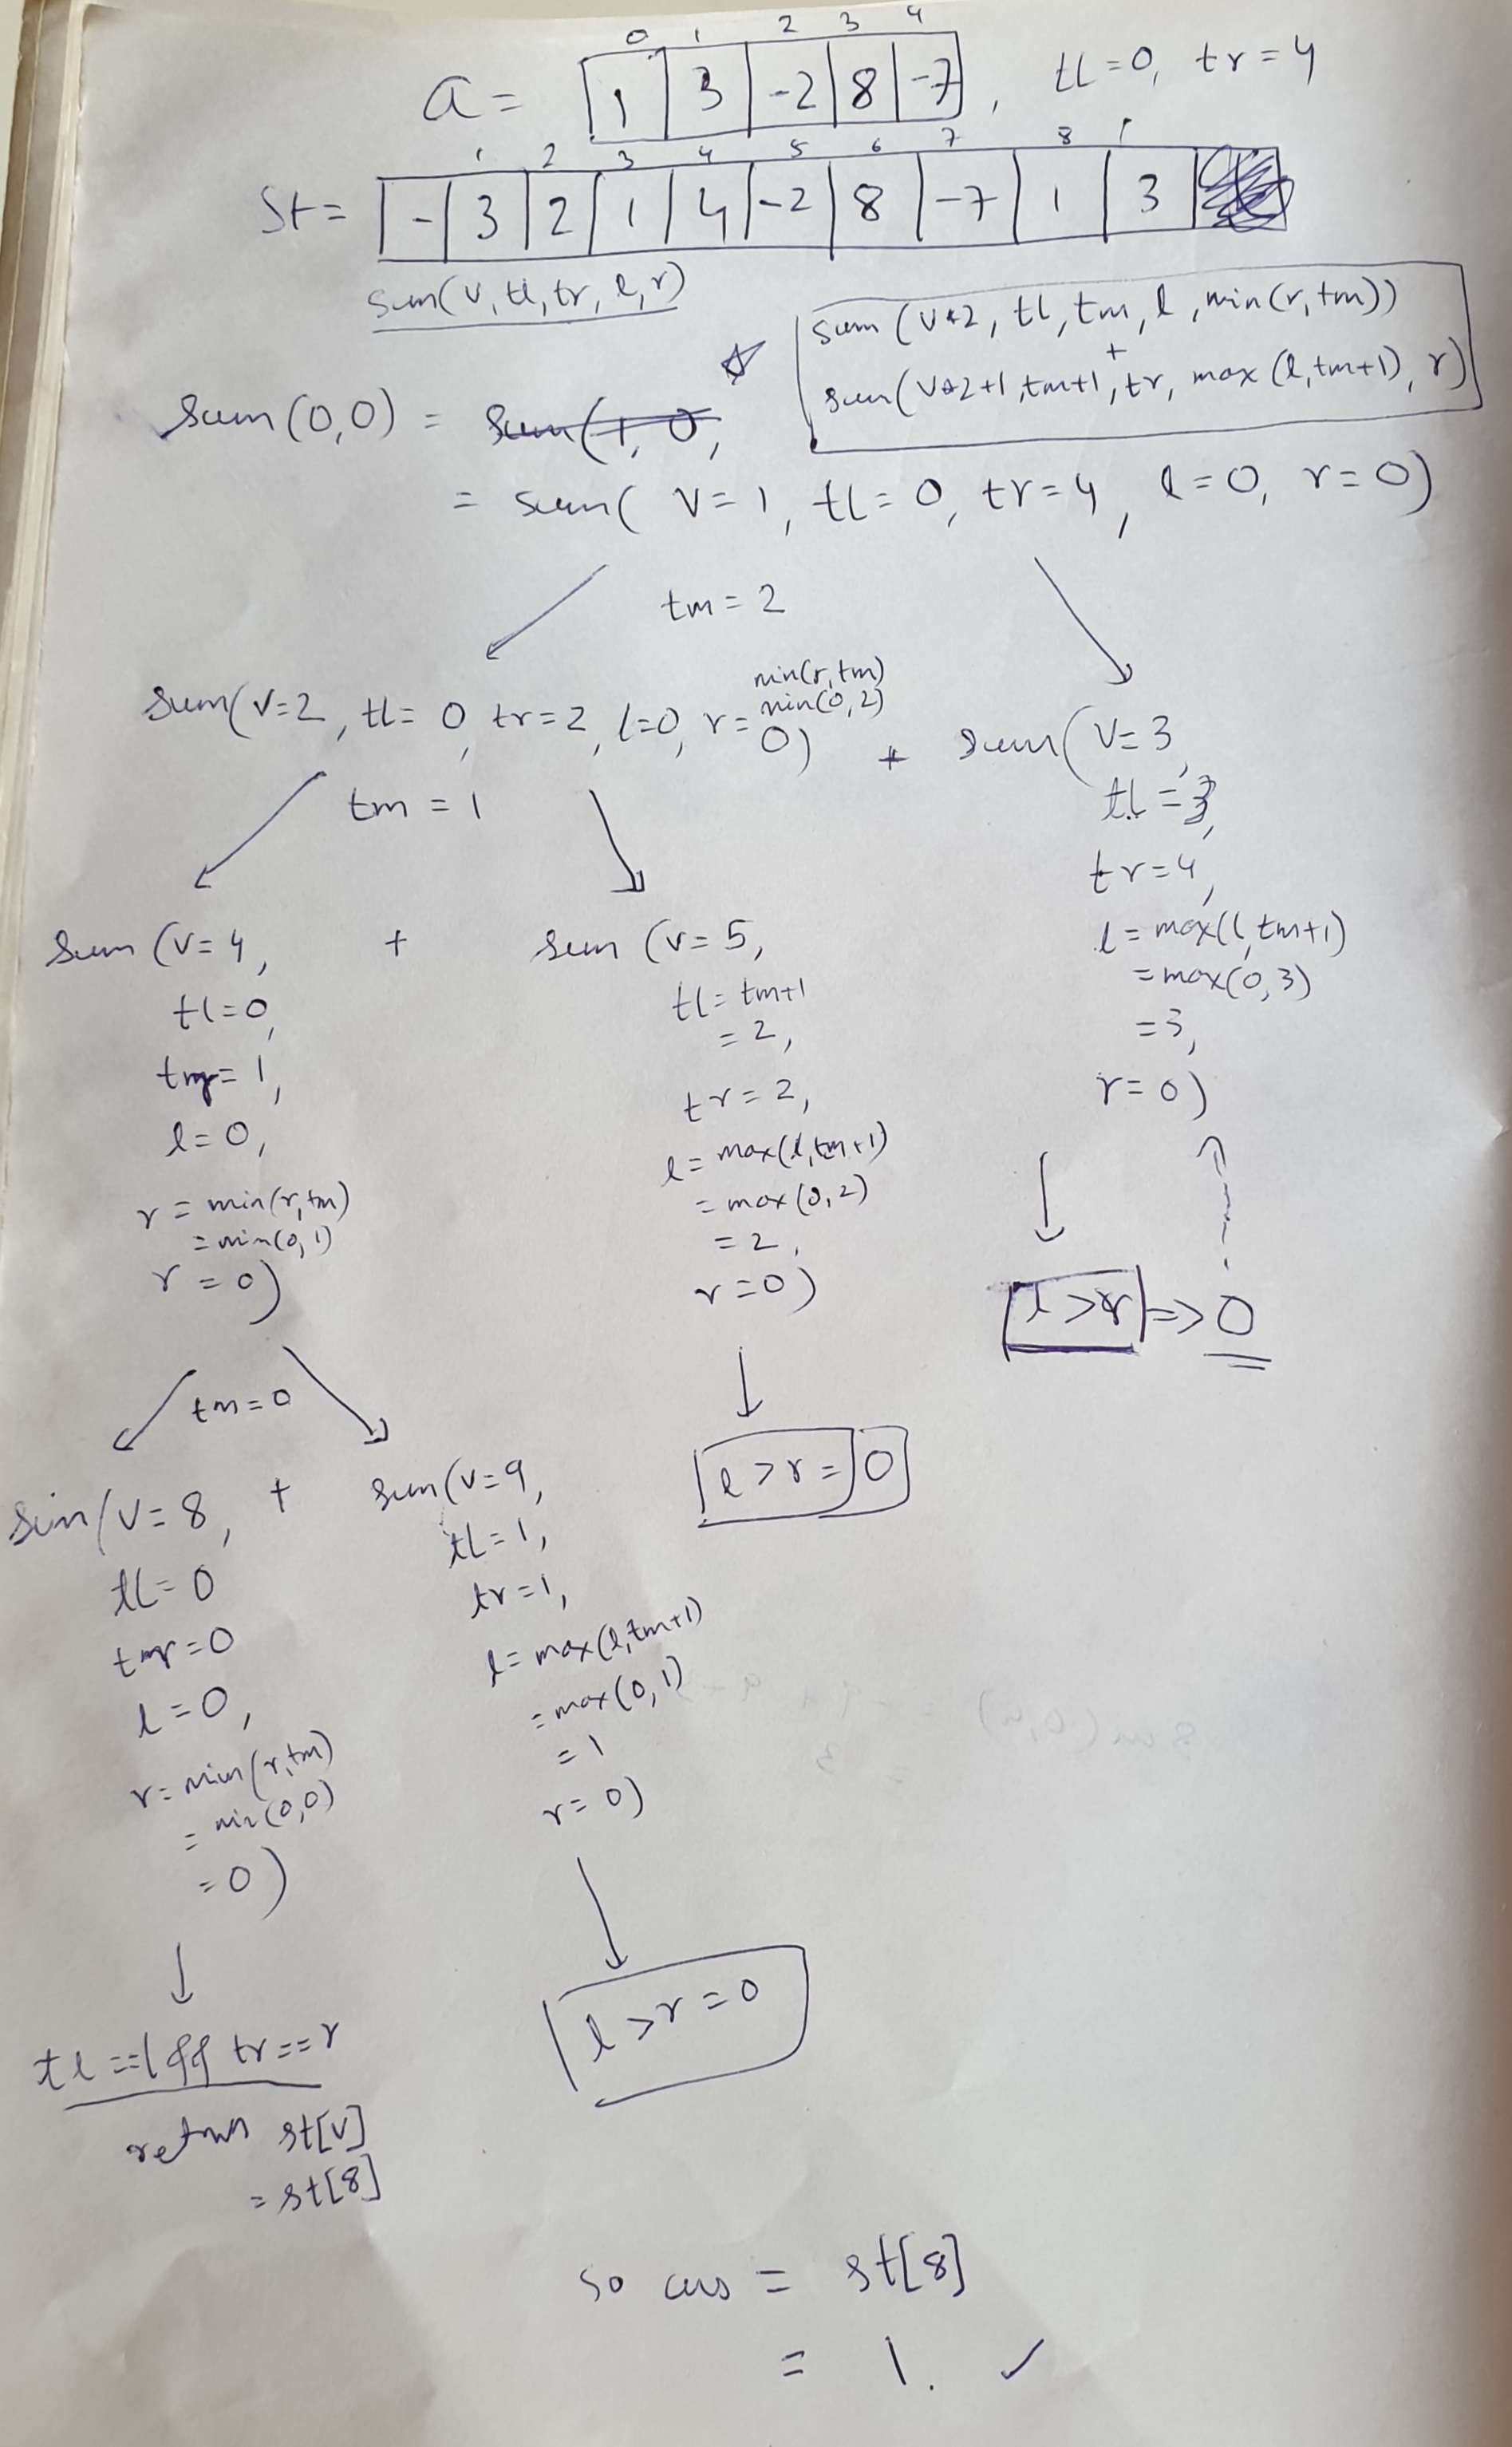 0 1 2 3 4
a = 1 3 -2 8 -7 , tl=0, tr=4
1 2 3 4 5 6 7 8 9
St= - 3 2 1 4 -2 8 -7 1 3
sum(v,tl,tr,l,r)
sum(v*2, tl, tm, l, min(r,tm))
+
sum(v*2+1, tm+1, tr, max(l,tm+1), r)
sum(0,0) = sum(1, 0,
= sum( v=1, tl=0, tr=4, l=0, r=0)
tm=2
min(r,tm)
min(0,2)
sum(v=2, tl=0, tr=2, l=0, r=0) + sum(v=3,
tl=3,
tr=4,
l=max(l,tm+1)
=max(0,3)
=3,
r=0)
l>r => 0
tm=1
sum(v=4, + sum(v=5,
tl=0,
tr=1,
l=0,
r=min(r,tm)
=min(0,1)
r=0)
tl=tm+1
=2,
tr=2,
l=max(l,tm+1)
=max(0,2)
=2,
r=0)
l>r= 0
tm=0
sum(v=8, + sum(v=9,
tl=0
tr=0
l=0,
r=min(r,tm)
=min(0,0)
=0)
tl=1,
tr=1,
l=max(l,tm+1)
=max(0,1)
=1
r=0)
l>r=0
tl==l && tr==r
return st[v]
=st[8]
so ans = st[8]
= 1. ✓